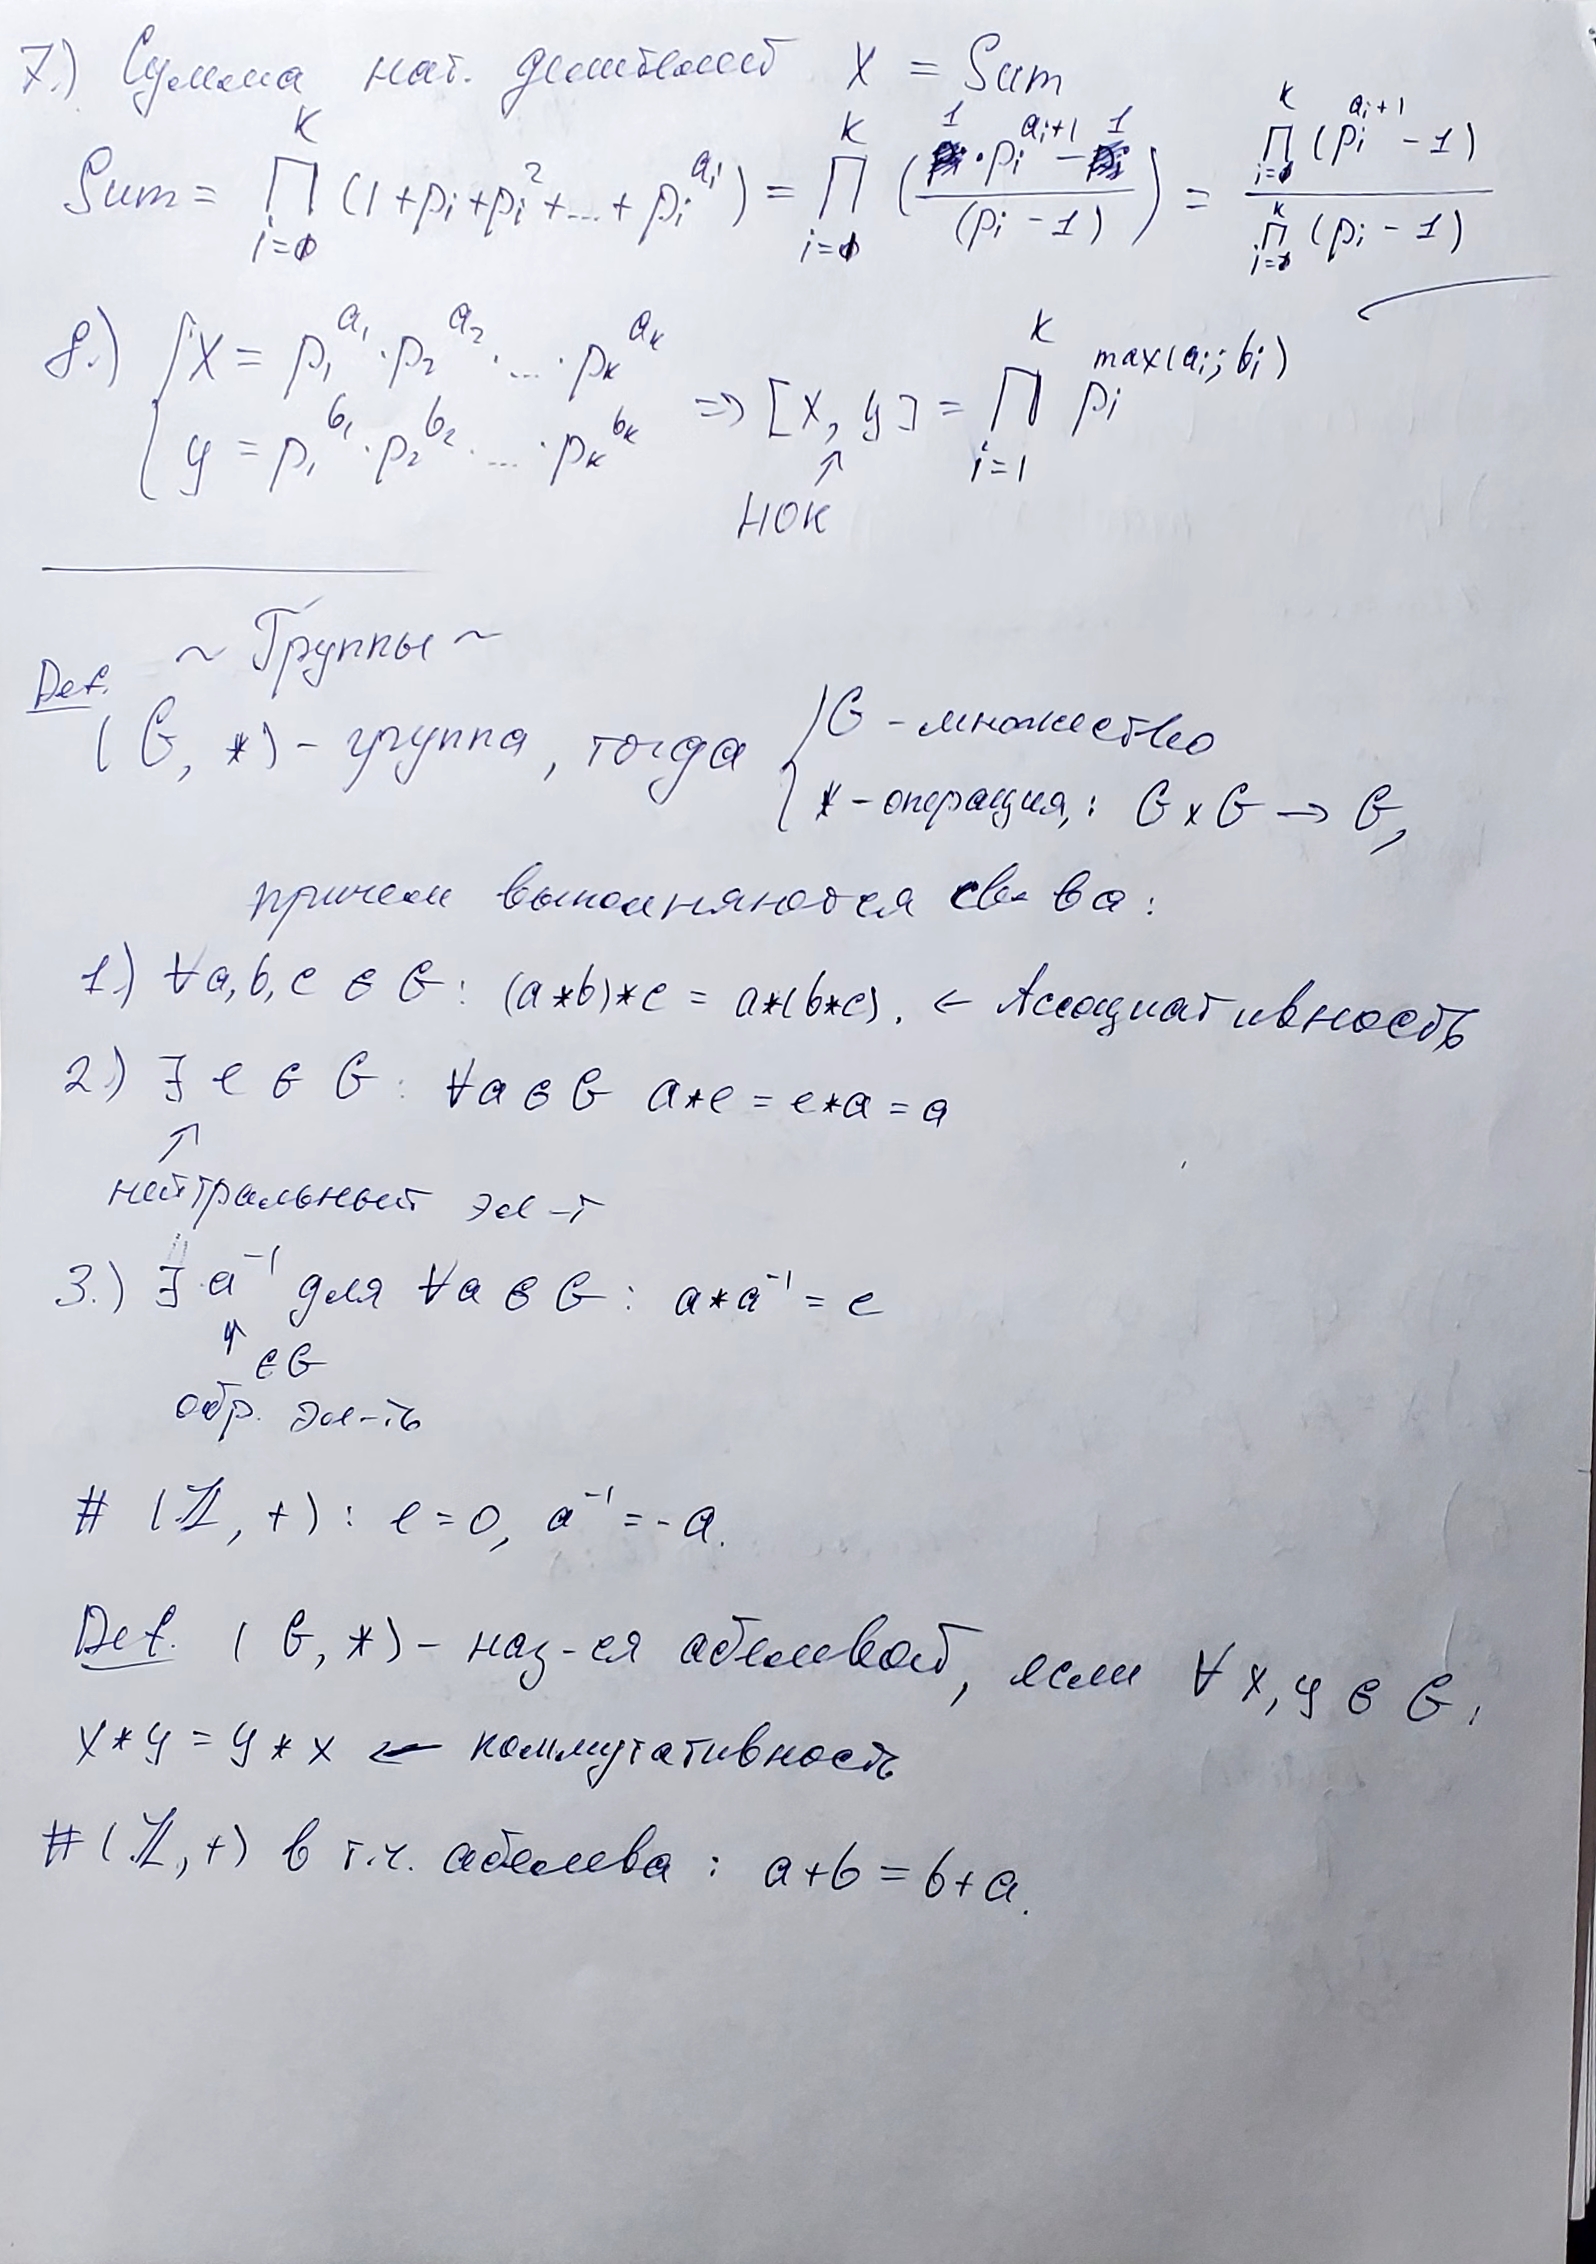 7.) Сумма нат. делителей X = Sum
Sum = ∏_{i=1}^{K} (1 + p_i + p_i^2 + ... + p_i^{a_i}) = ∏_{i=1}^{K} ((1 · p_i^{a_i+1} - 1) / (p_i - 1)) = ∏_{i=1}^{K} (p_i^{a_i+1} - 1) / ∏_{i=1}^{K} (p_i - 1)
8.) { X = p_1^{a_1} · p_2^{a_2} · ... · p_k^{a_k}
y = p_1^{b_1} · p_2^{b_2} · ... · p_k^{b_k} ⇒ [x, y] = ∏_{i=1}^{K} p_i^{max(a_i; b_i)}
↑
НОК
~ Группы ~
Def.
(G, *) - группа, тогда { G - множество
* - операция,: G x G → G,
причем выполняются св-ва:
1.) ∀a, b, c ∈ G: (a*b)*c = a*(b*c). ← Ассоциативность
2.) ∃ e ∈ G: ∀a ∈ G a*e = e*a = a
↑
нейтральный эл-т
3.) ∃ a^{-1} для ∀a ∈ G: a*a^{-1} = e
↑ ∈ G
обр. эл-ть
# (ℤ, +): e = 0, a^{-1} = -a.
Def. (G, *) - наз-ся абелевой, если ∀ x, y ∈ G:
x * y = y * x ← коммутативность
# (ℤ, +) в т.ч. абелева: a+b = b+a.